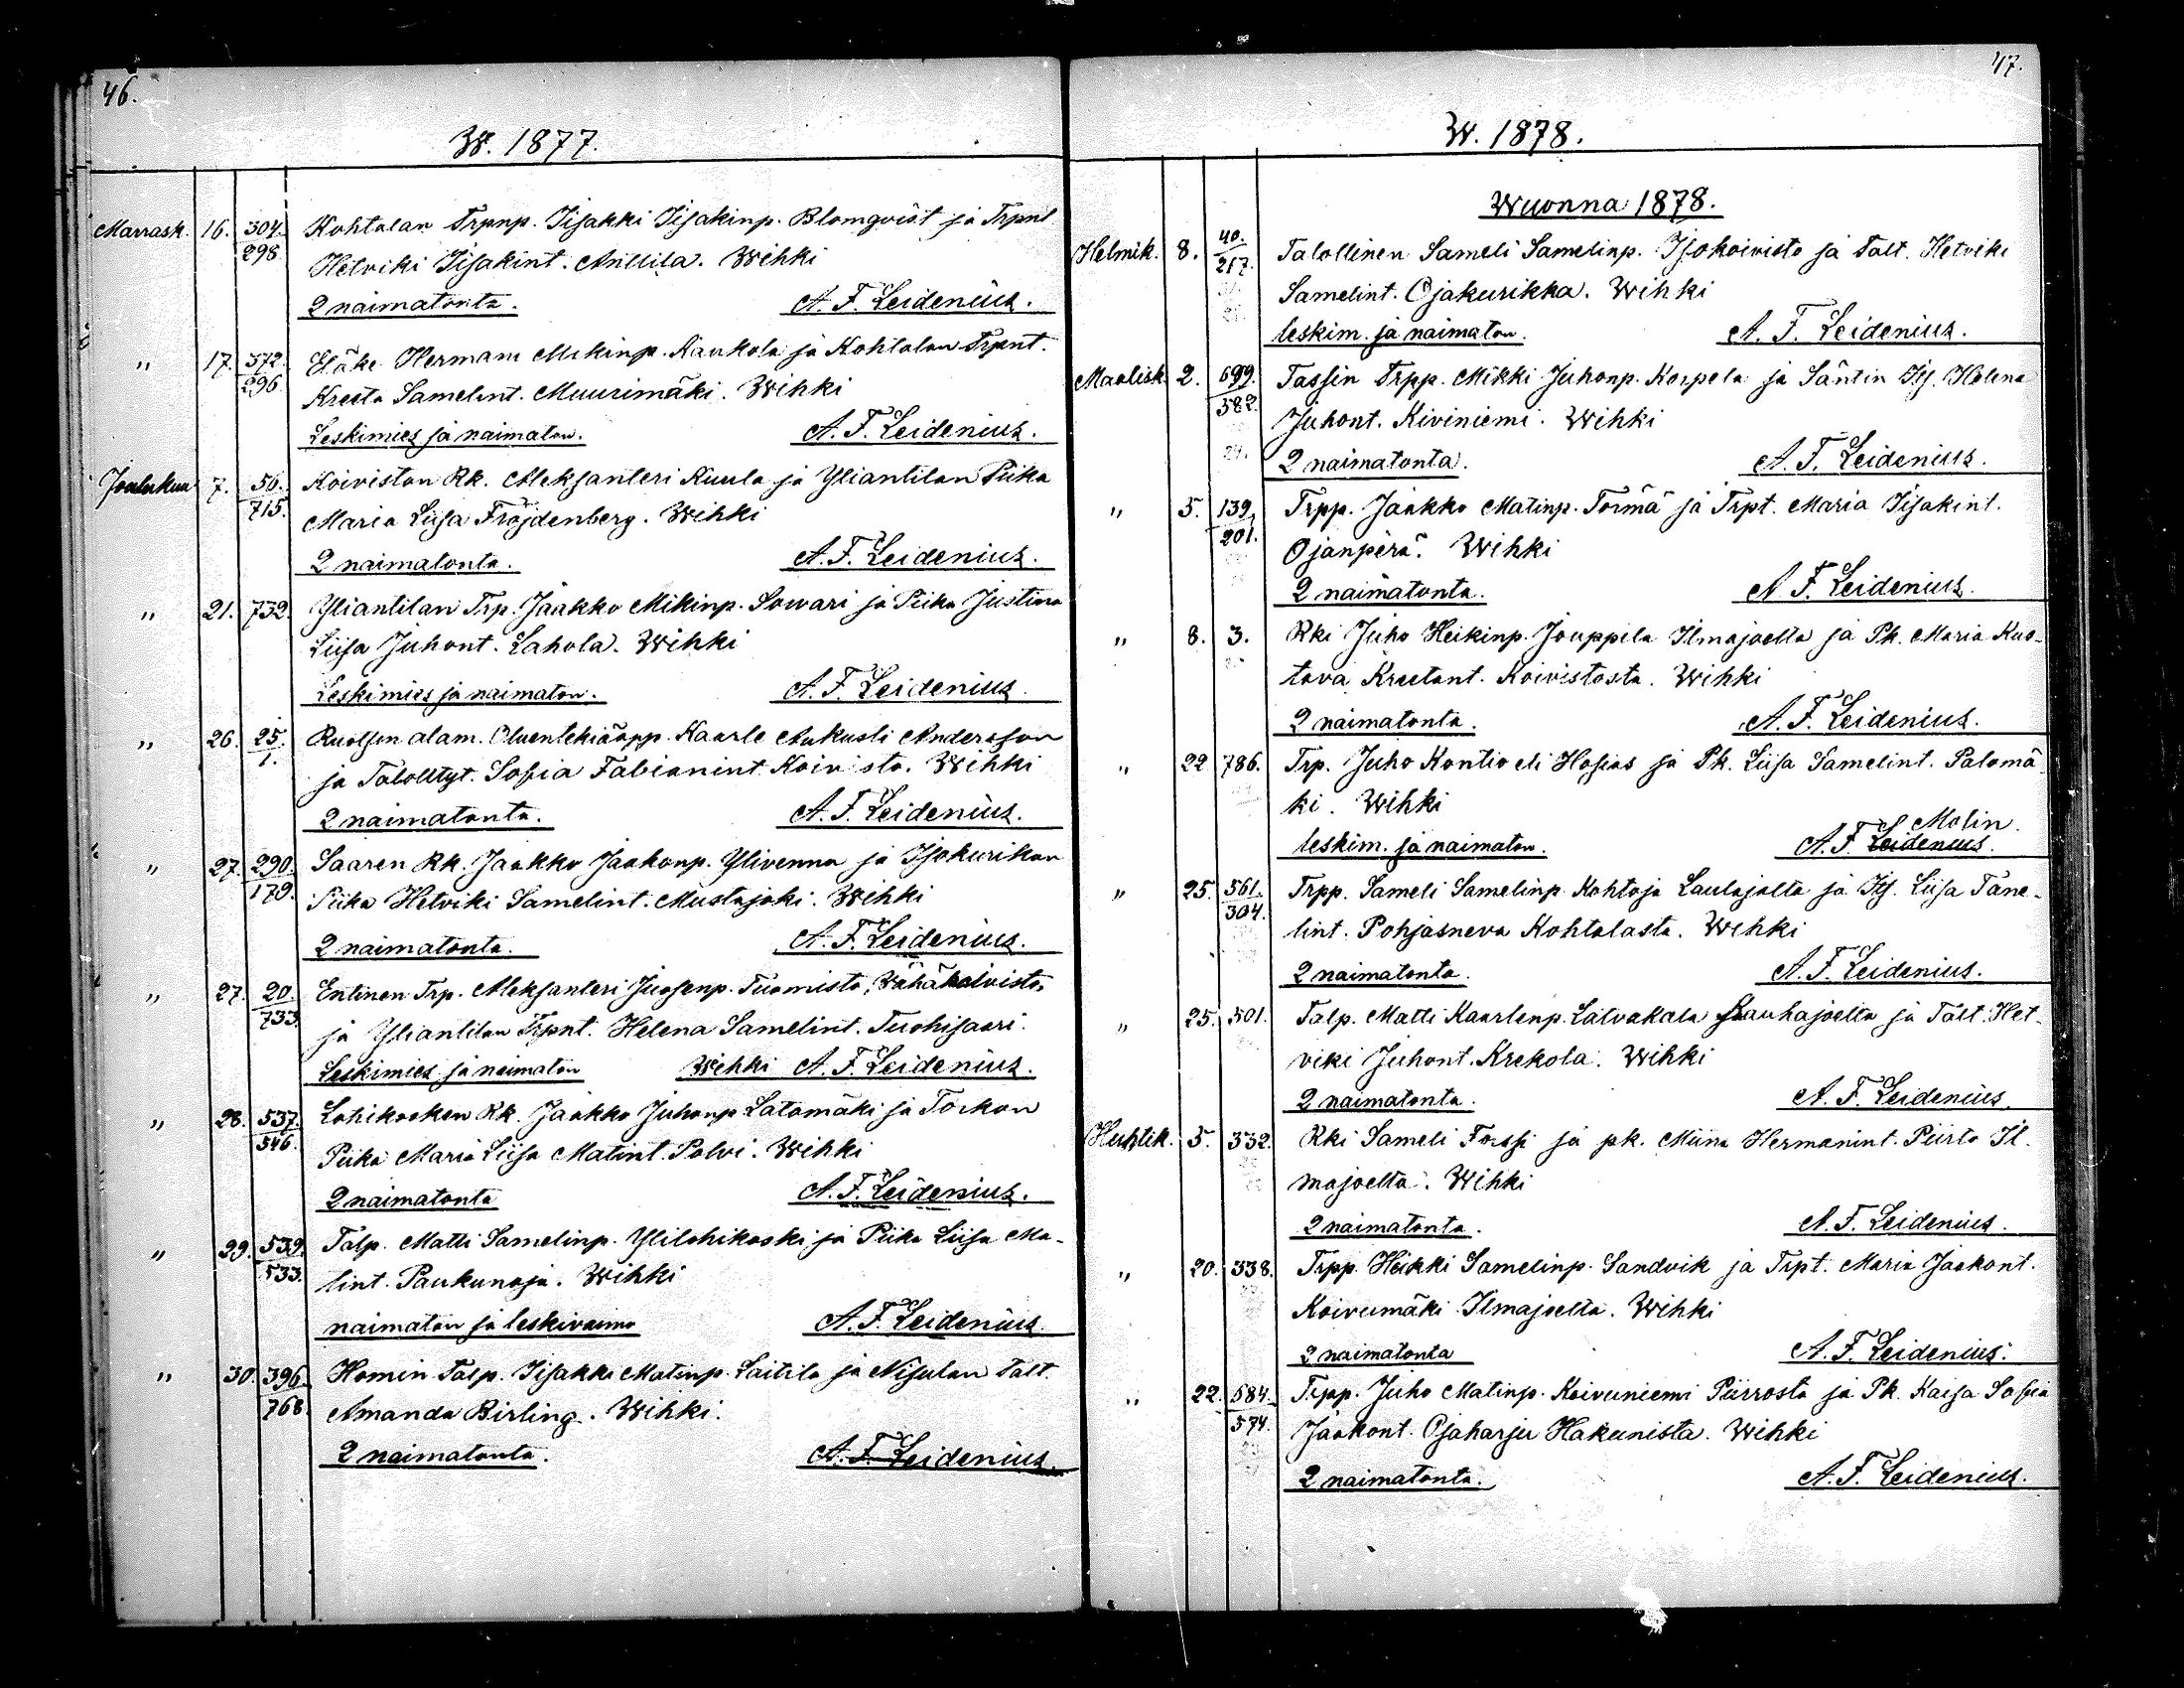 46.
W. 1877.
Marrask. 16. 304. Kohtalan Trpnp. Iisakki Iisakinp. Blomqvist ja Trpnt
298 Hetviki Iisakint. Anttila. Wihki
2 naimatonta. A. F. Leidenius.
" 17. 372. Eläke Hermani Mikinp. Kaukola ja Kohtalan Trpnt.
296. Kreeta Samelint. Muurimäki. Wihki
Leskimies ja naimaton. A. F. Leidenius.
Joulukuu 7. 50. Koiviston Rk. Aleksanteri Kuula ja Yliantilan Piika
715. Maria Liisa Fröjdenberg. Wihki
2 naimatonta. A. F. Leidenius.
" 21. 732. Yliantilan Trp. Jaakko Mikinp. Sowari ja Piika Justina
Liisa Juhont. Lahola. Wihki
Leskimies ja naimaton. A. F. Leidenius.
" 26. 25. Ruotsin alam. Oluentekiäopp. Kaarle Aukusti Andersson
1. ja Talolltyt. Sofia Fabianint. Koivisto. Wihki
2 naimatonta. A. F. Leidenius.
" 27. 290. Saaren Rk. Jaakko Jaakonp. Ylivenna ja Isokurikan
179. Piika Hetviki Samelint. Mustajoki. Wihki
2 naimatonta. A. F. Leidenius.
" 27. 20. Entinen Trp. Aleksanteri Juosenp. Tuomisto, Wähäkoivisto,
733. ja Yliantilan Trpnt. Helena Samelint. Tuohisaari.
Leskimies ja naimaton Wihki A. F. Leidenius.
" 28. 537. Lohikosken Rk. Jaakko Juhonp Latomäki ja Torkon
546. Piika Maria Liisa Matint. Polvi. Wihki
2 naimatonta A. F. Leidenius.
" 29. 539. Talp. Matti Samelinp. Ylilohikoski ja Piika Liisa Ma-
533. tint. Paukunoja. Wihki
naimaton ja leskivaimo A. F. Leidenius.
" 30. 396. Homin Talp. Iisakki Matinp. Laitila ja Nisulan Talt.
768. Amanda Birling. Wihki.
2 naimatonta. A. F. Leidenius.
47.
W. 1878.
Wuonna 1878.
Helmik. 8. 40. Talollinen Sameli Samelinp. Isokoivisto ja Talt. Hetviki
217. Samelint. Ojakurikka. Wihki
leskim. ja naimaton. A. F. Leidenius.
Maalisk. 2. 699. Tassin Trpp. Mikki Juhonp. Korpela ja Säntin Itj. Helena
582. Juhont. Kiviniemi. Wihki
2 naimatonta. A. F. Leidenius.
" 5. 139. Trpp. Jaakko Matinp. Törmä ja Trpt. Maria Iisakint.
201. Ojanperä. Wihki
2 naimatonta. A F. Leidenius.
" 8. 3. Rki Juho Heikinp. Jouppila Ilmajoelta ja Pk. Maria Kus-
tava Kreetant. Koivistosta. Wihki
2 naimatonta. A. F. Leidenius.
" 22 786. Trp. Juho Kontio eli Hosias ja Pk. Liisa Samelint. Palomä-
ki. Wihki
S. Molin.
leskim. ja naimaton. A. F. Leidenius.
" 25. 561. Trpp. Sameli Samelinp. Kohtoja Laulajalta ja Itj. Liisa Tane-
304. lint. Pohjasneva Kohtalasta. Wihki
2 naimatonta. A. F. Leidenius.
" 25. 501. Talp. Matti Kaarlenp. Latvakala Kauhajoelta ja Talt. Het-
viki Juhont. Krekola. Wihki
2 naimatonta. A. F. Leidenius.
Huhtik. 5. 332. Rki Sameli Forssi ja pk. Miina Hermanint. Piirto Il-
majoelta. Wihki
2 naimatonta. A. F. Leidenius.
" 20. 338. Trpp. Heikki Samelinp. Sandvik ja Trpt. Maria Jaakont.
Koivumäki Ilmajoelta. Wihki
2 naimatonta A. F. Leidenius.
" 22. 584. Trpp. Juho Matinp. Koivuniemi Piirrosta ja Pk. Kaisa Sofia
574. Jaakont. Ojaharju Hakunista. Wihki
2 naimatonta. A. F. Leidenius.